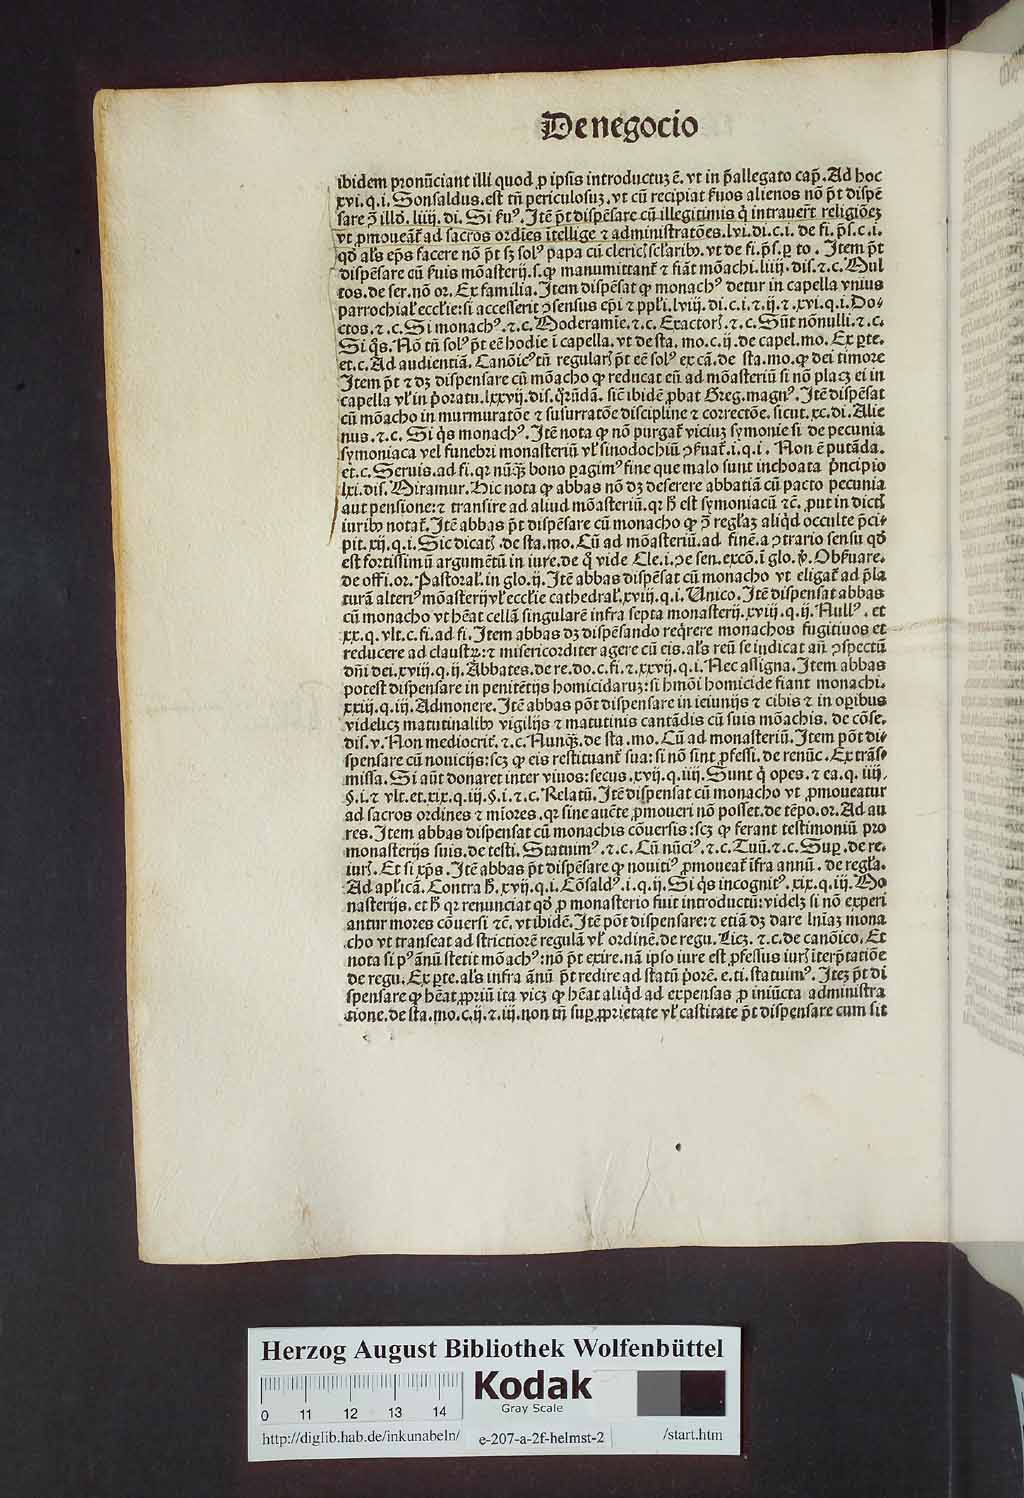 De negocio
ibidem pronūciant illi quod ꝑ ipsis introductuꝫ ē. vt in p̄allegato cap̄. Ad hoc
xvi. q. i. Gonsaldus. est tn̄ periculosuꝫ. vt cū recipiat ẜuos alienos nō p̄t dispē
sare ↄ̄ illd̓. liiij. di. Si ẜuꝰ. Itē p̄t dispēsare cū illegitimis q̇ intrauer̄t religiōeꝫ
vt ꝓmoueāt᷑ ad sacros ordīes ītellige ⁊ administratōes. lvi. di. c. i. de fi. p̄s. c. i.
qd̓ al̓s ep̄s facere nō p̄t sꝫ solꝰ papa cū clericꝭ sclaribꝰ. vt de fi. p̄s. ꝑ to. Item p̄t
dispēsare cū ẜuis mōasterij. s. ꝙ manumittant᷑ ⁊ fiāt mōachi. liiij. dis. ⁊. c. Mul
tos. de ser. nō or. Ex familia. Item dispēsat ꝙ monachꝰ detur in capella vnius
parrochial̓ eccl̓ie: si accesserit ↄsensus ep̄i ⁊ ppl̓i. lviij. di. c. i. ⁊. ij. ⁊. xvi. q. i. Do⸗
ctos. ⁊. c. Si monachꝰ. ⁊. c. Moderamīe. ⁊. c. Exactorꝭ. ⁊. c. Sūt nōnulli. ⁊. c.
Si q̇s. Nō tn̄ solꝰ p̄t eē hodie ī capella. vt de sta. mo. c. ij. de capel. mo. Ex ꝑte.
et. c. Ad audientiā. Canōicꝰ tn̄ regularꝭ p̄t eē solꝰ ex cā. de sta. mo. ꝙ dei timore
Item p̄t ⁊ dꝫ dispensare cū mōacho ꝙ reducat eū ad mōasteriū si nō placꝫ ei in
capella vl̓ in p̓oratu. lxxvij. dis. q̓rūdā. sic̄ ibidē ꝓbat Greg. magnꝰ. Itē dispēsat
cū mōacho in murmuratōe ⁊ susurratōe discipline ⁊ correctōe. sicut. xc. di. Alie
nus. ⁊. c. Si q̇s monachꝰ. Itē nota ꝙ nō purgat᷑ viciuꝫ symonie si de pecunia
symoniaca vel funebri monasteriū vl̓ sinodochiū ↄẜuat᷑. i. q. i. Non ē putāda.
et. c. Seruis. ad fi. qꝛ nūqꝫ̄ bono ꝑagimꝰ fine que malo sunt inchoata p̓ncipio
lxi. dis. Miramur. Hic nota ꝙ abbas nō dꝫ deserere abbatiā cū pacto pecunia
aut pensione: ⁊ transire ad aliud mōasteriū. qꝛ h̓ est symoniacū ⁊c̄. ꝓut in dictꝭ
iuribꝰ notat᷑. Itē abbas p̄t dispēsare cū monacho ꝙ ↄ̄ regl̓aꝫ aliq̇d occulte p̄ci⸗
pit. xij. q. i. Sic dicatꝭ. de sta. mo. Cū ad mōasteriū. ad finē. a ↄtrario sensu qd̓
est fortissimū argumētū in iure. de q̊ vide Cle. i. de sen. excō. ī glo. Obẜuare.
de offi. or. Pastoral̓. in glo. ij. Itē abbas dispēsat cū monacho vt eligat᷑ ad p̄la
turā alteriꝰ mōasterij vl̓ eccl̓ie cathedral̓. xviij. q. i. Unico. Itē dispensat abbas
cū monacho vt hēat cellā singularē infra septa monasterij. xviij. q. ij. Nullꝰ. et
xx. q. vlt. c. fi. ad fi. Item abbas dꝫ dispēsando req̇rere monachos fugitiuos et
reducere ad claustꝝ: ⁊ misericorditer agere cū eis. al̓s reū se indicat an̄ ↄspectū
dn̄i dei. xviij. q. ij. Abbates. de re. do. c. fi. ⁊. xxvij. q. i. Nec assigna. Item abbas
potest dispensare in penitētijs homicidaruꝫ: si hmōi homicide fiant monachi.
xxiij. q. iij. Admonere. Itē abbas pōt dispensare in ieiunijs ⁊ cibis ⁊ in oꝑibus
videlicꝫ matutinalibꝰ vigilijs ⁊ matutinis cantādis cū suis mōachis. de cōse.
dis. v. Non mediocrit̓. ⁊. c. Nunqꝫ̄. de sta. mo. Cū ad monasteriū. Item pōt di⸗
spensare cū nouicijs: scꝫ ꝙ eis restituant᷑ sua: si nō sint ꝓfessi. de renūc. Ex trās⸗
missa. Si aūt donaret inter viuos: secus. xvij. q. iiij. Sunt q̇ opes. ⁊ ea. q. iiij.
§. i. ⁊ vlt. et. xix. q. iij. §. i. ⁊. c. Relatū. Itē dispensat cū monacho vt ꝓmoueatur
ad sacros ordines ⁊ mīores. qꝛ sine auc̄te ꝓmoueri nō posset. de tēpo. or. Ad au
res. Item abbas dispensat cū monachis cōuersis: scꝫ ꝙ ferant testimoniū pro
monasterijs suis. de testi. Statuimꝰ. ⁊. c. Cū nūciꝰ. ⁊. c. Tuū. ⁊. c. Suꝑ. de re.
iurꝭ. Et si xp̄s. Itē abbas p̄t dispēsare ꝙ nouitiꝰ ꝓmoueat᷑ īfra annū. de regl̓a.
Ad apl̓icā. Contra h̓. xvij. q. i. Cōsaldꝰ. i. q. ij. Si q̇s incognitꝰ. xix. q. iij. Mo
nasterijs. et h̓ qꝛ renunciat qd̓ ꝓ monasterio fuit introductū: videlꝫ si nō experi
antur mores cōuersi ⁊c̄. vt ibidē. Itē pōt dispensare: ⁊ etiā dꝫ dare lnīaꝫ mona
cho vt transeat ad strictiorē regulā vl̓ ordinē. de regu. Licꝫ. ⁊. c. de canōico. Et
nota si pꝰ ānū stetit mōachꝰ: nō p̄t exire. nā ipso iure est ꝓfessus iurꝭ iterp̄tatiōe
de regu. Ex ꝑte. al̓s infra ānū p̄t redire ad statū p̓orē. e. ti. statuimꝰ. Iteꝫ p̄t di
spensare ꝙ hēat ꝓpriū ita vicꝫ ꝙ hēat aliq̇d ad expensas ꝓ iniūcta administra
tione. de sta. mo. c. ij. ⁊. iij. non tn̄ suꝑ ꝓprietate vl̓ castitate p̄t dispensare cum sit
Herzog August Bibliothek Wolfenbüttel
0 11 12 13 14
Kodak
Gray Scale
http://diglib.hab.de/inkunabeln/ e-207-a-2f-helmst-2 /start.htm